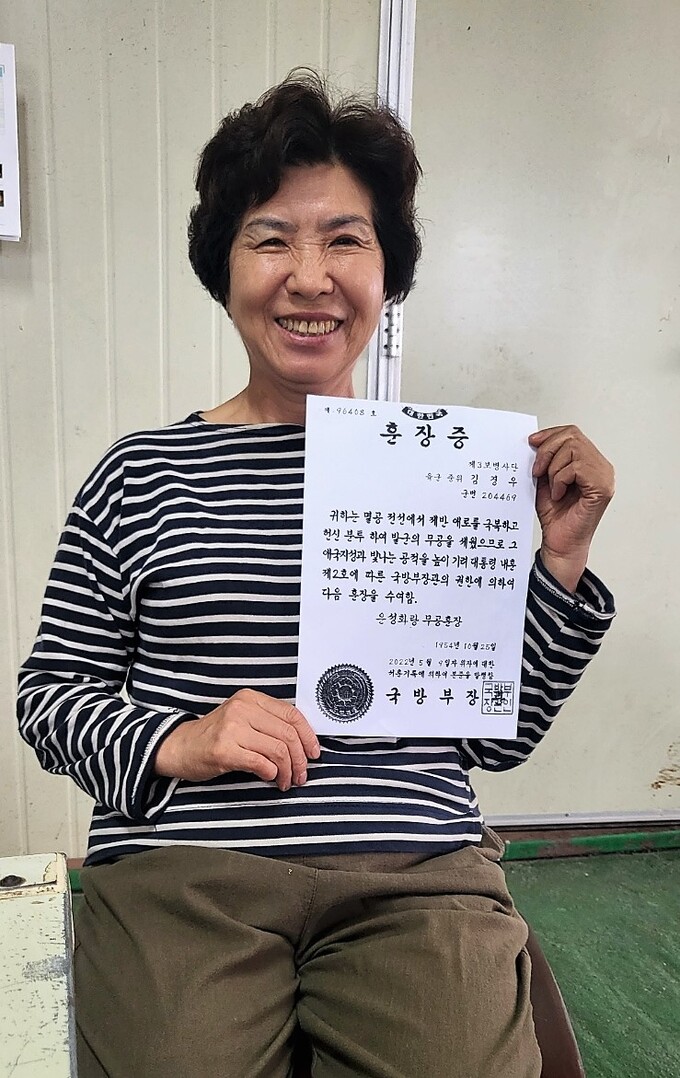 제 90408 호
대한민국
훈장증
제3보병사단
육군 중위 김경우
군번 204469
귀하는 멸공 전선에서 제반 애로를 극복하고
헌신 분투 하여 발군의 무공을 세웠으므로 그
애국지성과 빛나는 공적을 높이 기려 대통령 내훈
제2호에 따른 국방부장관의 권한에 의하여
다음 훈장을 수여함.
은성화랑 무공훈장
1954년 10월 25일
2022년 5월 9일자 위자에 대한
서훈기록에 의하여 본증을 발행함
국방부장관
국방부
장관인